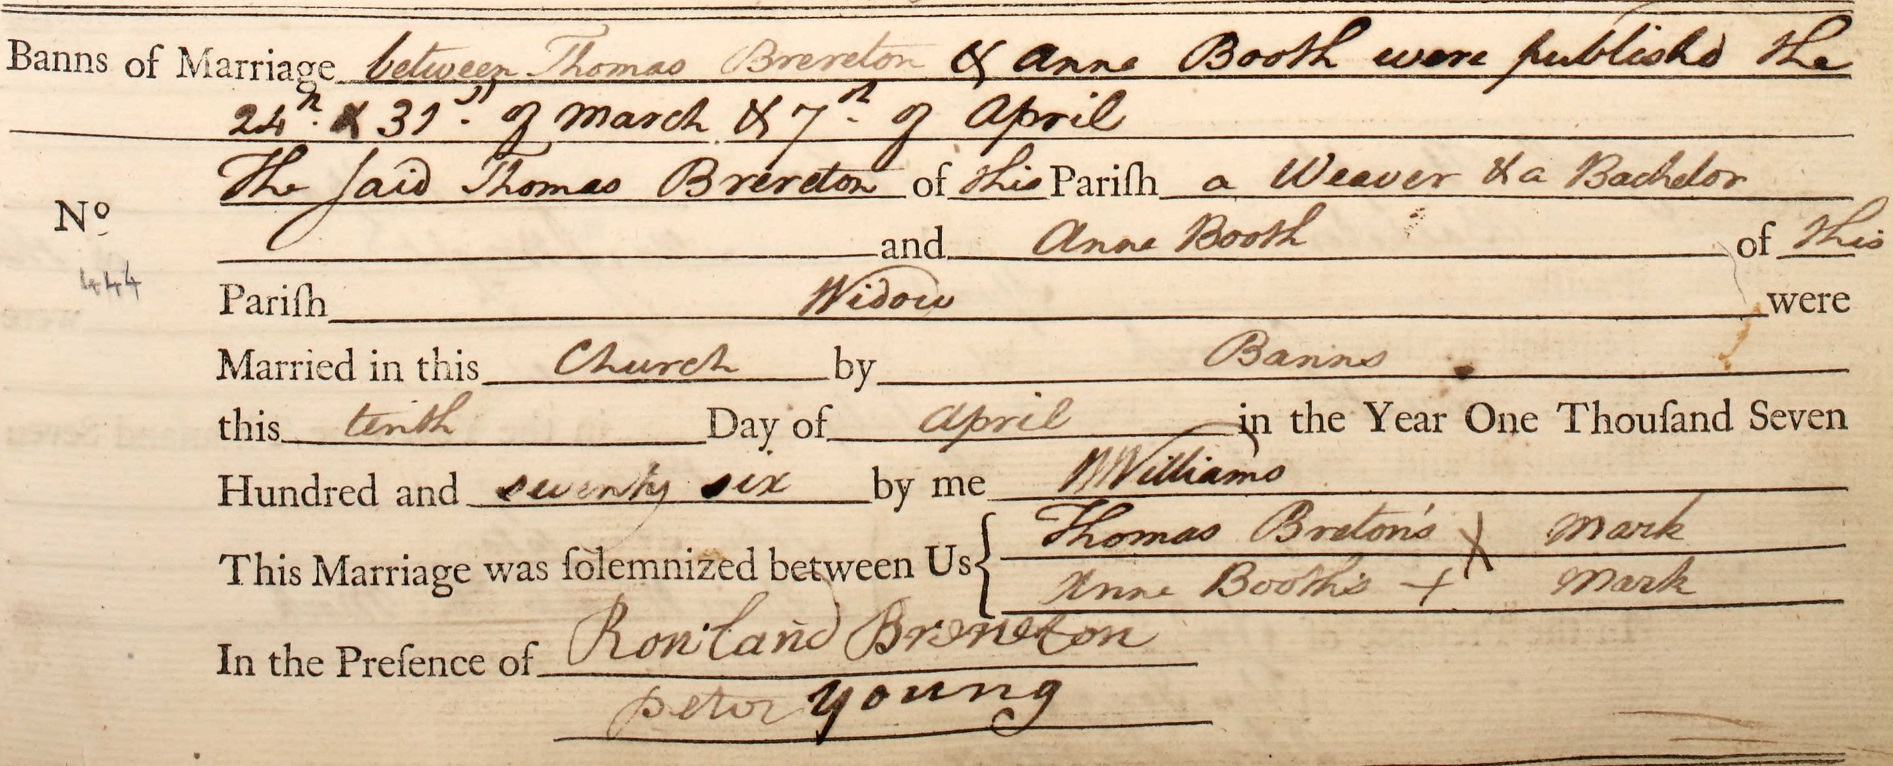 Banns of Marriage between Thomas Brereton & Anne Booth were publishd the
24th. & 31st. of March & 7th. of April
The said Thomas Brereton of this Pariſh a Weaver & a Bachelor
No and Anne Booth of this
444
Pariſh Widow were
Married in this Church by Banns
this tenth Day of April in the Year One Thouſand Seven
Hundred and seventy six by me WWilliams
This Marriage was ſolemnized between Us { Thomas Breton's X Mark
Anne Booth's + Mark
In the Preſence of Rowland Brereton
peter young